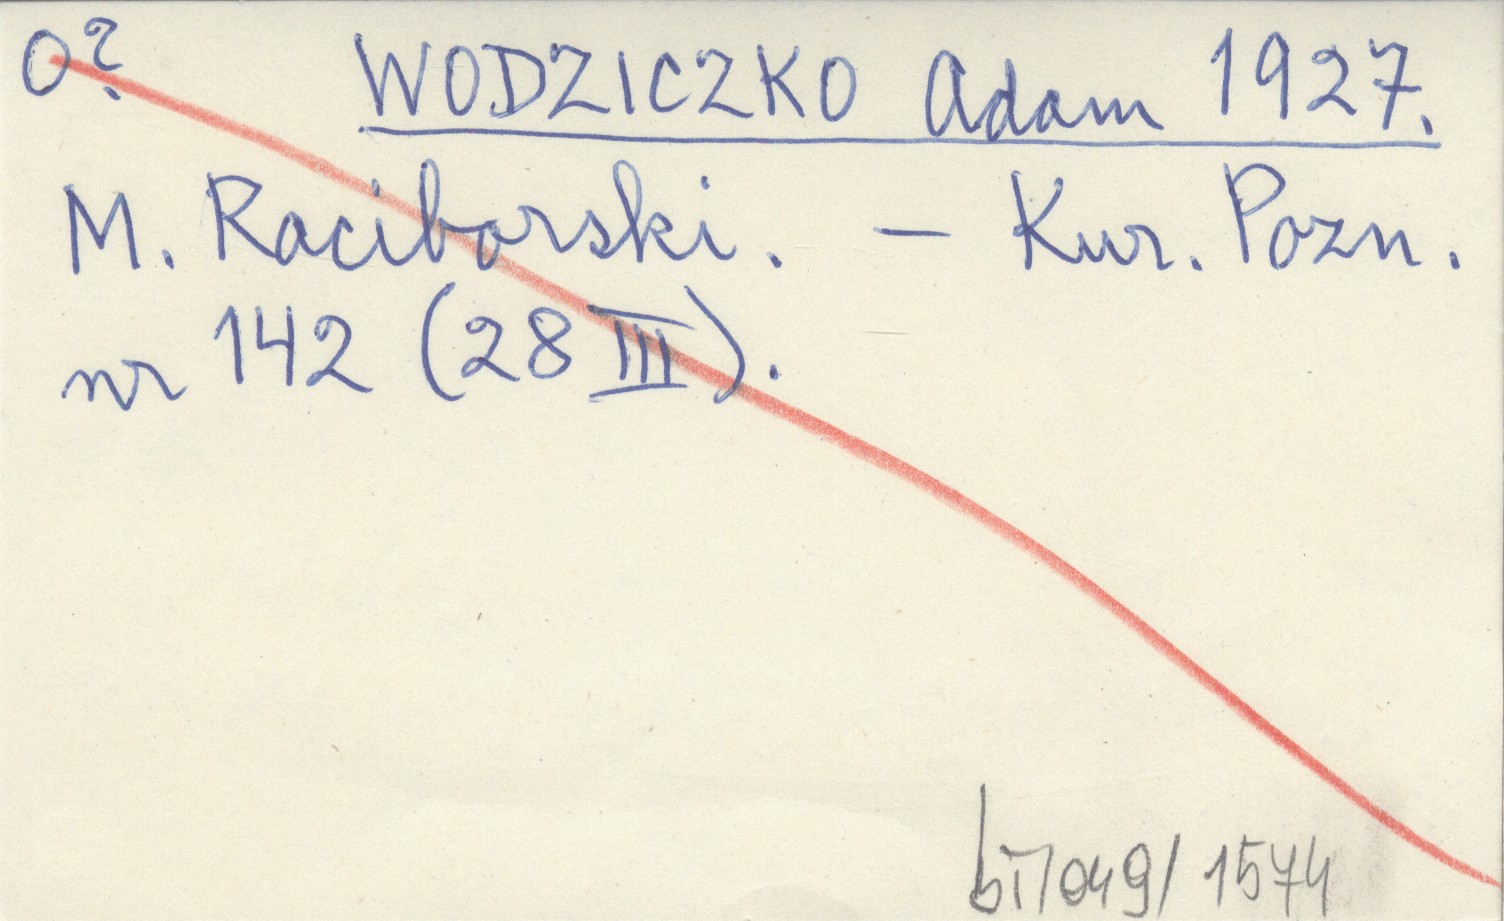 O? WODZICZKO Adam 1927.
M. Raciborski. – Kur. Pozn.
nr 142 (28 III).
bi/049/1574